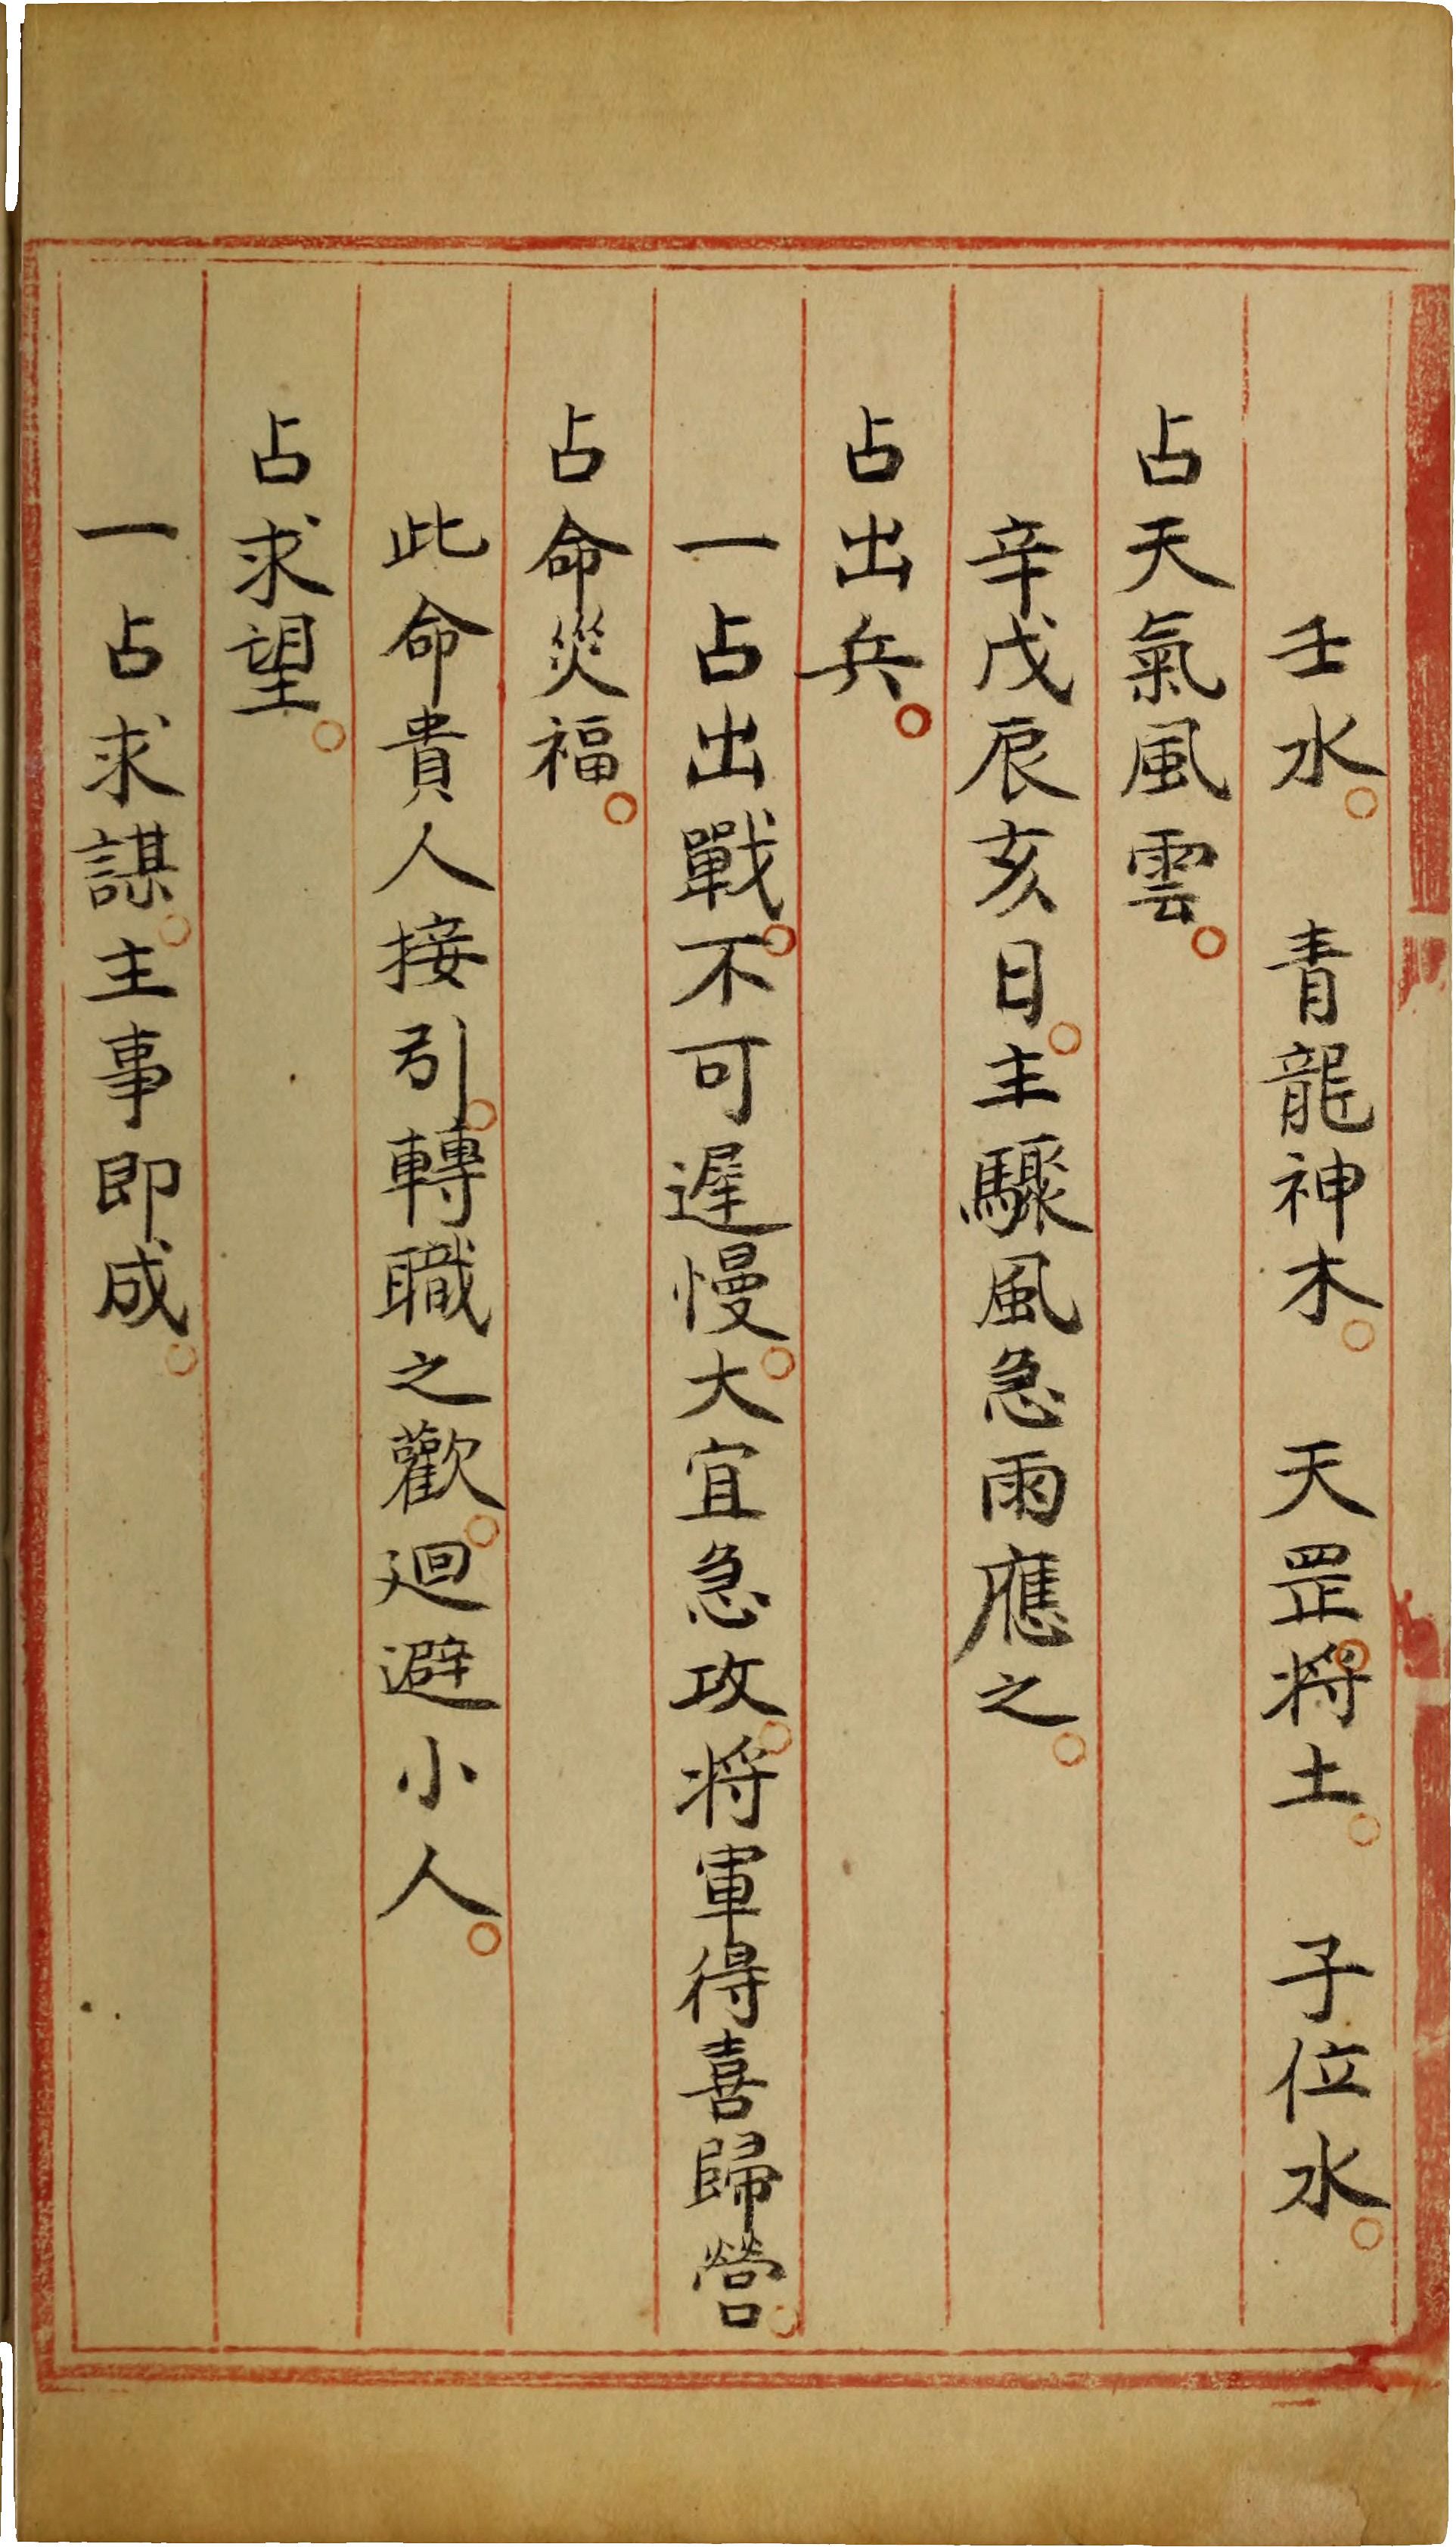 壬水。　青龍神木。　天罡將土。　子位水。
占天氣風雲。
辛戊辰亥日。主驟風急雨應之。
占出兵。
一占出戰。不可遲慢。大宜急攻。將軍得喜歸營。
占命災福。
此命貴人接引。轉職之歡。廻避小人。
占求望。
一占求謀。主事即成。